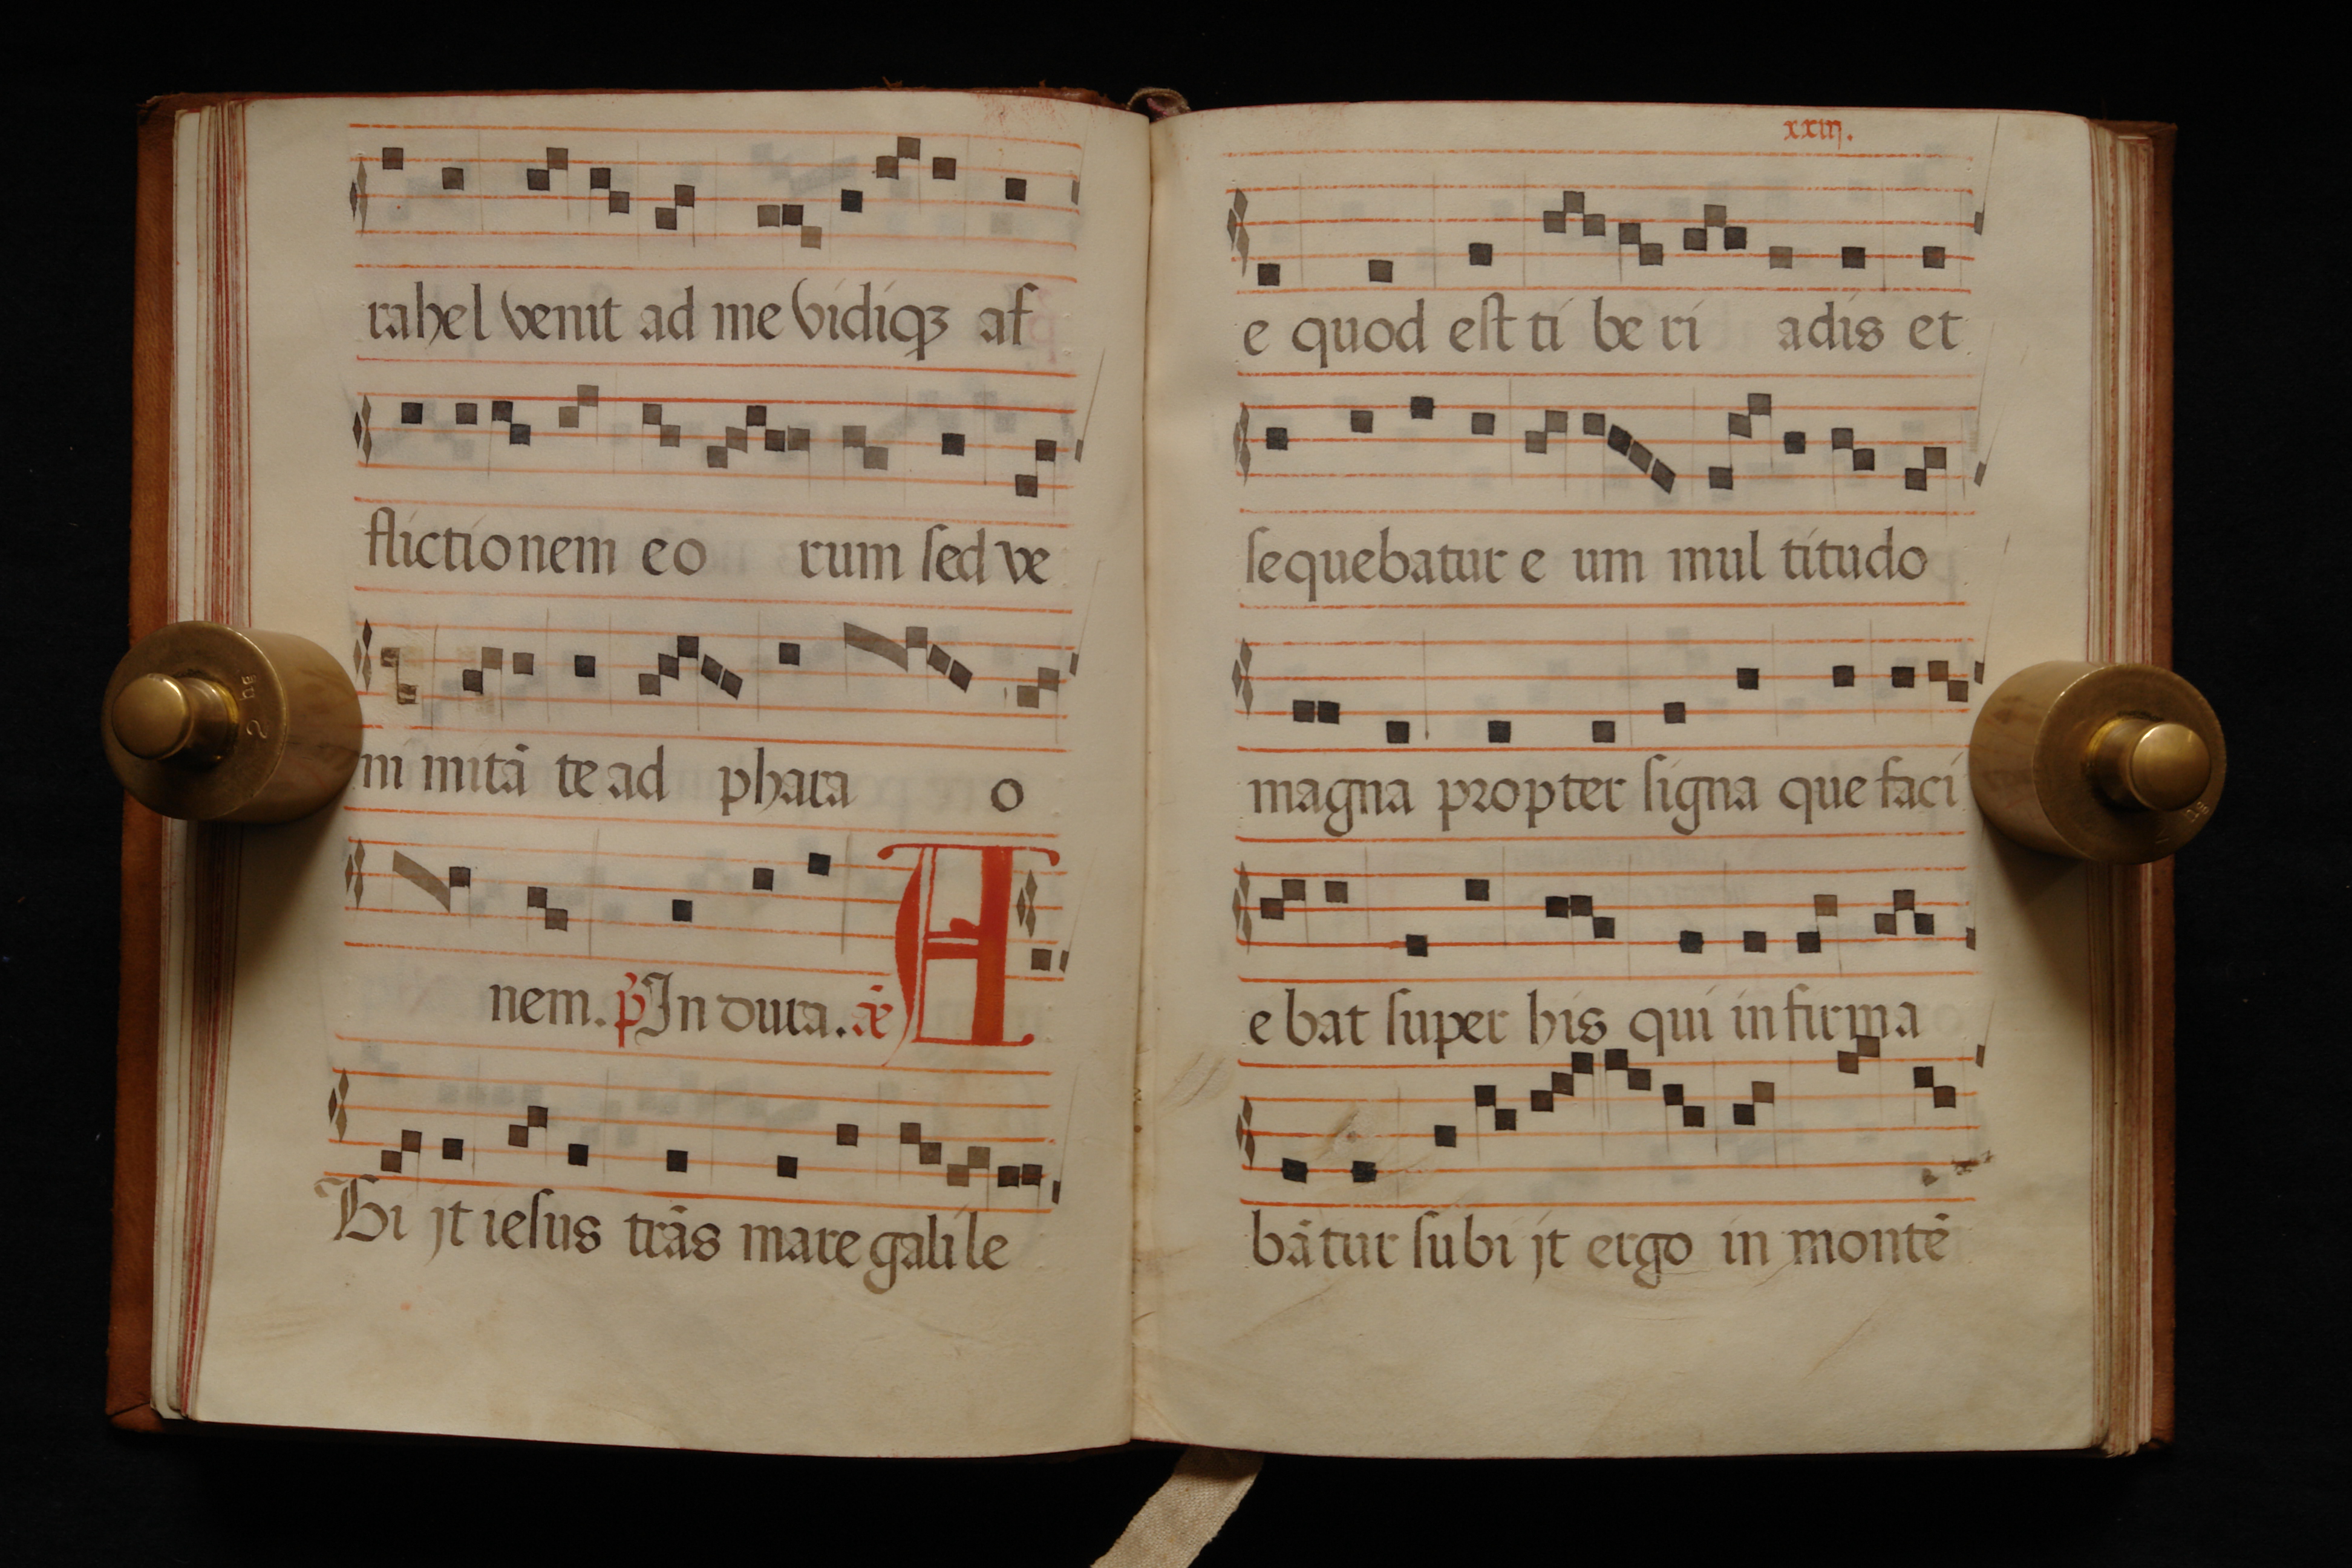 rahel venit ad me vidiqꝫ af
flictionem eo rum ſed ve
ni mitā te ad phara o
nem. p̄ In dura. ā A
Bi jt ieſus trās mare galile
xxiij.
e quod eſt ti be ri adis et
ſequebatur e um mul titudo
magna propter ſigna que faci
e bat ſuper his qui infirma
bātur ſubi jt ergo in montē
2 hg